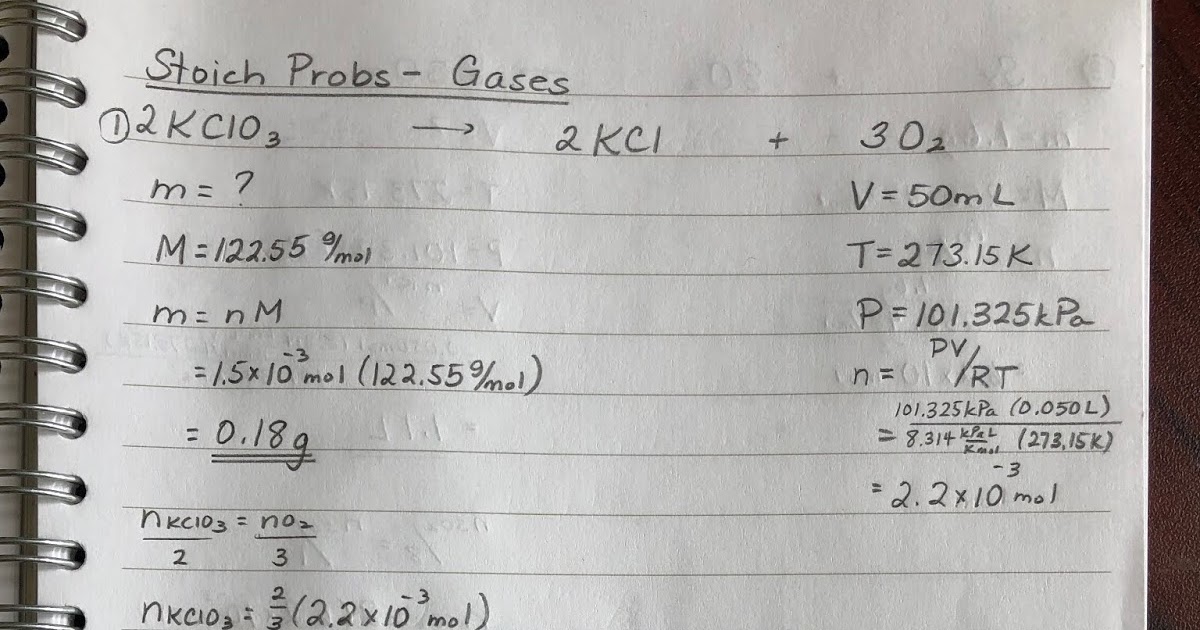 Stoich Probs - Gases
① 2KClO₃ → 2KCl + 3O₂
m = ? V = 50mL
M = 122.55 g/mol T = 273.15K
m = nM P = 101.325kPa
= 1.5×10⁻³ mol (122.55 g/mol) n = PV/RT
= 0.18g = 101.325kPa (0.050L) / 8.314 kPaL/Kmol (273.15K)
= 2.2×10⁻³ mol
nKClO₃/2 = nO₂/3
nKClO₃ = 2/3 (2.2×10⁻³ mol)